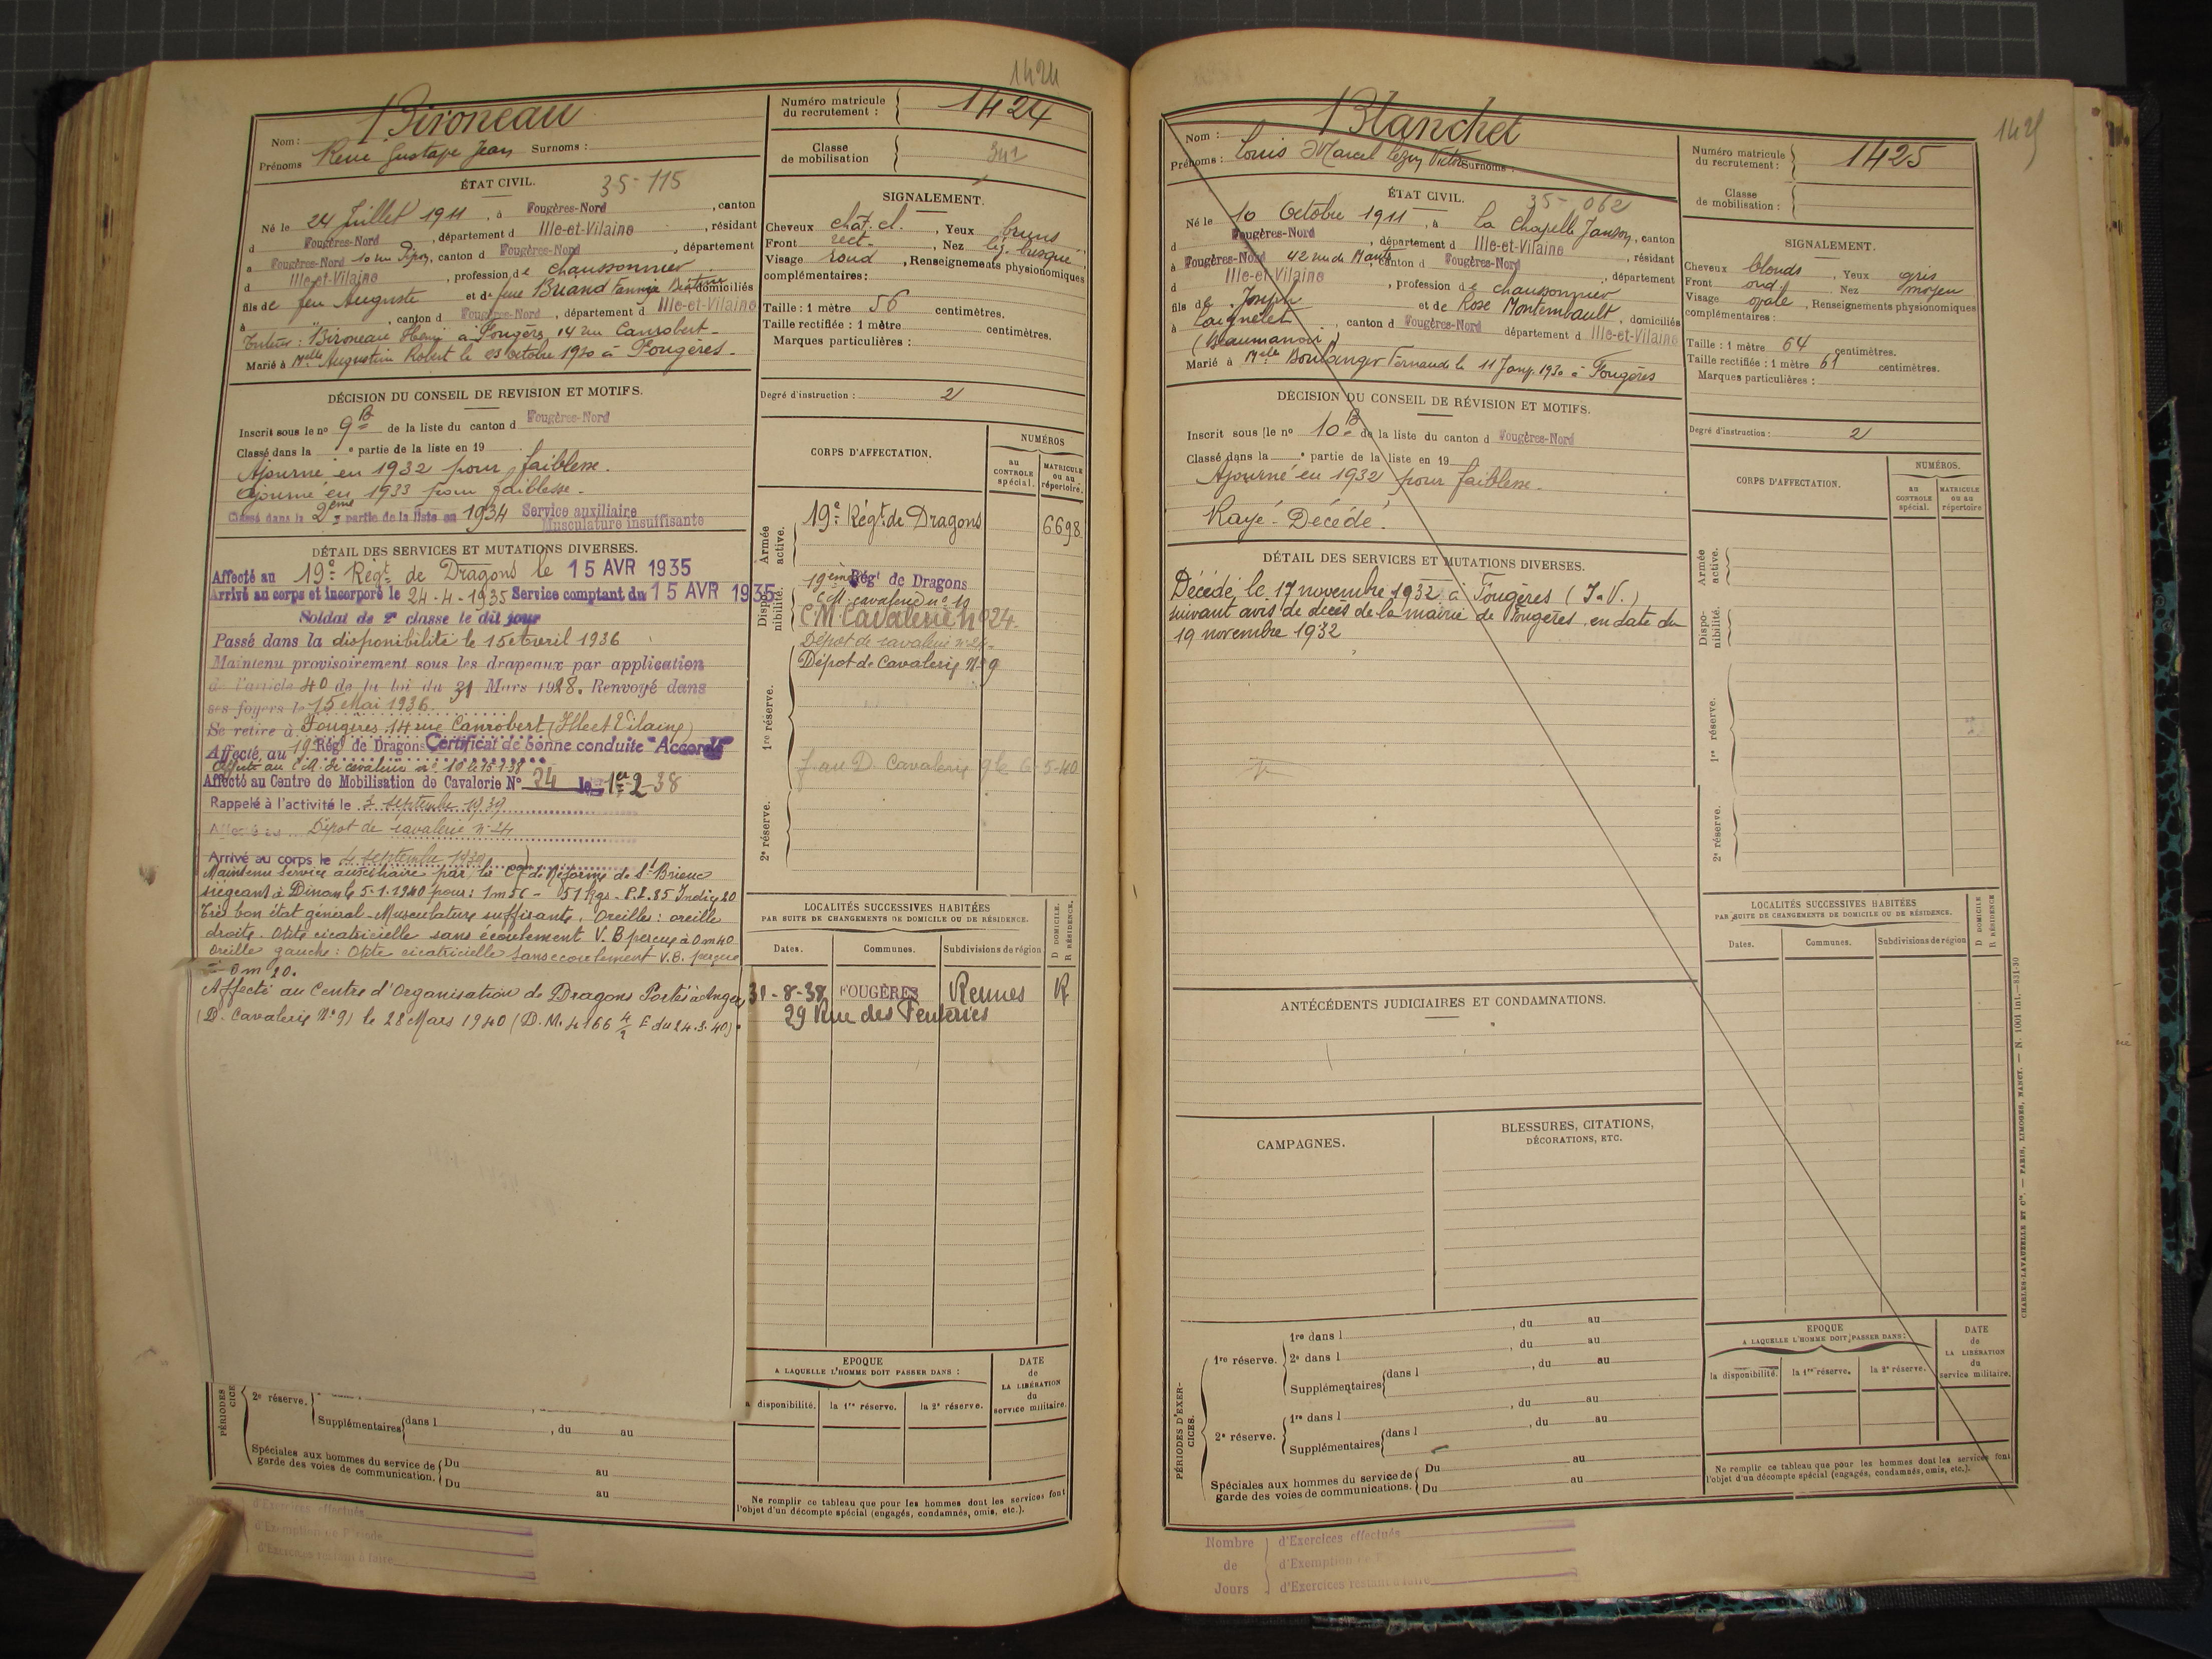 1424
Nom : Bironeau
Prénoms René Gustave Jean Surnoms :
ÉTAT CIVIL. 35-115
Né le 24 Juillet 1911, à Fougères-Nord, canton
d Fougères-Nord, département d Ille-et-Vilaine, résidant
à Fougères-Nord 10 rue, canton d Fougères-Nord, département
d Ille-et-Vilaine, profession de chaussonnier
fils de feu Auguste et de feue Briand Fannye, domiciliés
à " , canton d Fougères-Nord, département d Ille-et-Vilaine
Tuteur : Bironeau Henri à Fougères, 14 rue Canrobert
Marié à Melle Augustine Robert le 03 octobre 1930 à Fougères.
DÉCISION DU CONSEIL DE REVISION ET MOTIFS.
Inscrit sous le no 9 B de la liste du canton d Fougères-Nord
Classé dans la e partie de la liste en 19
Ajourné en 1932 pour faiblesse.
Ajourné en 1933 pour faiblesse.
Classé dans la 2ème partie de la liste en 1934 Service auxiliaire
Musculature insuffisante
DÉTAIL DES SERVICES ET MUTATIONS DIVERSES.
Affecté au 19e Régt de Dragons le 15 AVR 1935
Arrivé au corps et incorporé le 24-4-1935 Service comptant du 15 AVR 1935
Soldat de 2e classe le dit jour
Passé dans la disponibilité le 15 Avril 1936
Maintenu provisoirement sous les drapeaux par application
de l'article 40 de la loi du 31 Mars 1928. Renvoyé dans
ses foyers le 15 Mai 1936.
Se retire à Fougères 14 rue Canrobert (Ille et Vilaine)
Affecté au 19e Régt de Dragons Certificat de bonne conduite "Accordé"
Affecté au C.M. de cavalerie no 10 le 15-1-38
Affecté au Centre de Mobilisation de Cavalerie No 24 le 1er-2-38
Rappelé à l'activité le 3 septembre 1939
Affecté au Dépôt de cavalerie no 24
Arrivé au corps le 4 septembre 1939
Maintenu Service auxiliaire par la Con de Réforme de St Brieuc
siégeant à Dinan le 5-1-1940 pour : 1m56 - 51 kgs - P.T. 85 Indice 20
Très bon état général - Musculature suffisante. Oreilles : oreille
droite. Otite cicatricielle sans écoulement V.B perçue à 0m40
Oreille gauche : Otite cicatricielle sans écoulement V.B. perçue
à 0m20.
Affecté au Centre d'Organisation de Dragons Portés à Angers
(D. Cavalerie No 9) le 28 Mars 1940 (D.M. 4166 4/2 E du 24.3.40).
PÉRIODES
CICE
2e réserve.
Supplémentaires dans l , du au
Spéciales aux hommes du service de
garde des voies de communication. Du au
Du au
d'Exercices effectués
d'Exemption de Période
d'Exercices restant à faire
Numéro matricule
du recrutement : 1424
Classe
de mobilisation
SIGNALEMENT.
Cheveux chât. cl. , Yeux bruns
Front rect. , Nez lég. busqué
Visage rond , Renseignements physionomiques
complémentaires :
Taille : 1 mètre 56 centimètres.
Taille rectifiée : 1 mètre centimètres.
Marques particulières :
Degré d'instruction : 2
CORPS D'AFFECTATION.
NUMÉROS
au
CONTROLE
spécial.
MATRICULE
ou au
répertoire.
Armée
active.
19e Régt de Dragons 6698
Dispo-
nibilité.
19ème Régt de Dragons
C.M. cavalerie no 10
C.M Cavalerie No 24
Dépôt de cavalerie no 24
Dépôt de Cavalerie No 9
1re réserve.
f. au D. Cavalerie 9 le 6-5-40
2e réserve.
LOCALITÉS SUCCESSIVES HABITÉES
PAR SUITE DE CHANGEMENTS DE DOMICILE OU DE RÉSIDENCE.
Dates. Communes. Subdivisions de région D DOMICILE R RÉSIDENCE.
31-8-38 FOUGÈRES Rennes R
29 Rue des Feuteries
EPOQUE
A LAQUELLE L'HOMME DOIT PASSER DANS :
la disponibilité. la 1re réserve. la 2e réserve.
DATE
de
LA LIBÉRATION
du
service militaire.
Ne remplir ce tableau que pour les hommes dont les services font
l'objet d'un décompte spécial (engagés, condamnés, omis, etc.).
1425
Nom : Blanchet
Prénoms : Louis Marcel Victor Surnoms :
ÉTAT CIVIL. 35-062
Né le 10 Octobre 1911, à La Chapelle Janson, canton
d Fougères-Nord, département d Ille-et-Vilaine, résidant
à Fougères-Nord 42 rue de Nantes, canton d Fougères-Nord, département
d Ille-et-Vilaine, profession de chaussonnier
fils de Joseph et de Rose Montembault, domiciliés
à Laignelet, canton d Fougères-Nord département d Ille-et-Vilaine
(Beaumanoir)
Marié à Melle Boulanger Fernande le 11 Janv. 1930 à Fougères
DÉCISION DU CONSEIL DE RÉVISION ET MOTIFS.
Inscrit sous le no 10 B de la liste du canton d Fougères-Nord
Classé dans la e partie de la liste en 19
Ajourné en 1932 pour faiblesse.
Rayé. Décédé.
DÉTAIL DES SERVICES ET MUTATIONS DIVERSES.
Décédé le 17 novembre 1932 à Fougères (I.V.)
suivant avis de décès de la mairie de Fougères en date du
19 novembre 1932
ANTÉCÉDENTS JUDICIAIRES ET CONDAMNATIONS.
CAMPAGNES.
BLESSURES, CITATIONS,
DÉCORATIONS, ETC.
PÉRIODES D'EXER-
CICES.
1re réserve.
1re dans l , du au
2e dans l , du au
Supplémentaires dans l , du au
2e réserve.
1re dans l , du au
Supplémentaires dans l , du au
Spéciales aux hommes du service de
garde des voies de communications. Du au
Du au
Nombre
de
Jours
d'Exercices effectués
d'Exemption de
d'Exercices restant à faire
Numéro matricule
du recrutement : 1425
Classe
de mobilisation :
SIGNALEMENT.
Cheveux blonds , Yeux gris
Front ond. Nez moyen
Visage ovale , Renseignements physionomiques
complémentaires :
Taille : 1 mètre 64 centimètres.
Taille rectifiée : 1 mètre 61 centimètres.
Marques particulières :
Degré d'instruction : 2
CORPS D'AFFECTATION.
NUMÉROS.
au
CONTROLE
spécial.
MATRICULE
ou au
répertoire
Armée
active.
Dispo-
nibilité.
1re réserve.
2e réserve.
LOCALITÉS SUCCESSIVES HABITÉES
PAR SUITE DE CHANGEMENTS DE DOMICILE OU DE RÉSIDENCE.
Dates. Communes. Subdivisions de région D DOMICILE R RÉSIDENCE
EPOQUE
A LAQUELLE L'HOMME DOIT PASSER DANS :
la disponibilité. la 1re réserve. la 2e réserve.
DATE
de
LA LIBÉRATION
du
service militaire.
Ne remplir ce tableau que pour les hommes dont les services font
l'objet d'un décompte spécial (engagés, condamnés, omis, etc.).
CHARLES-LAVAUZELLE ET Cie. — PARIS, LIMOGES, NANCY. — N. 1001 int.—331-30